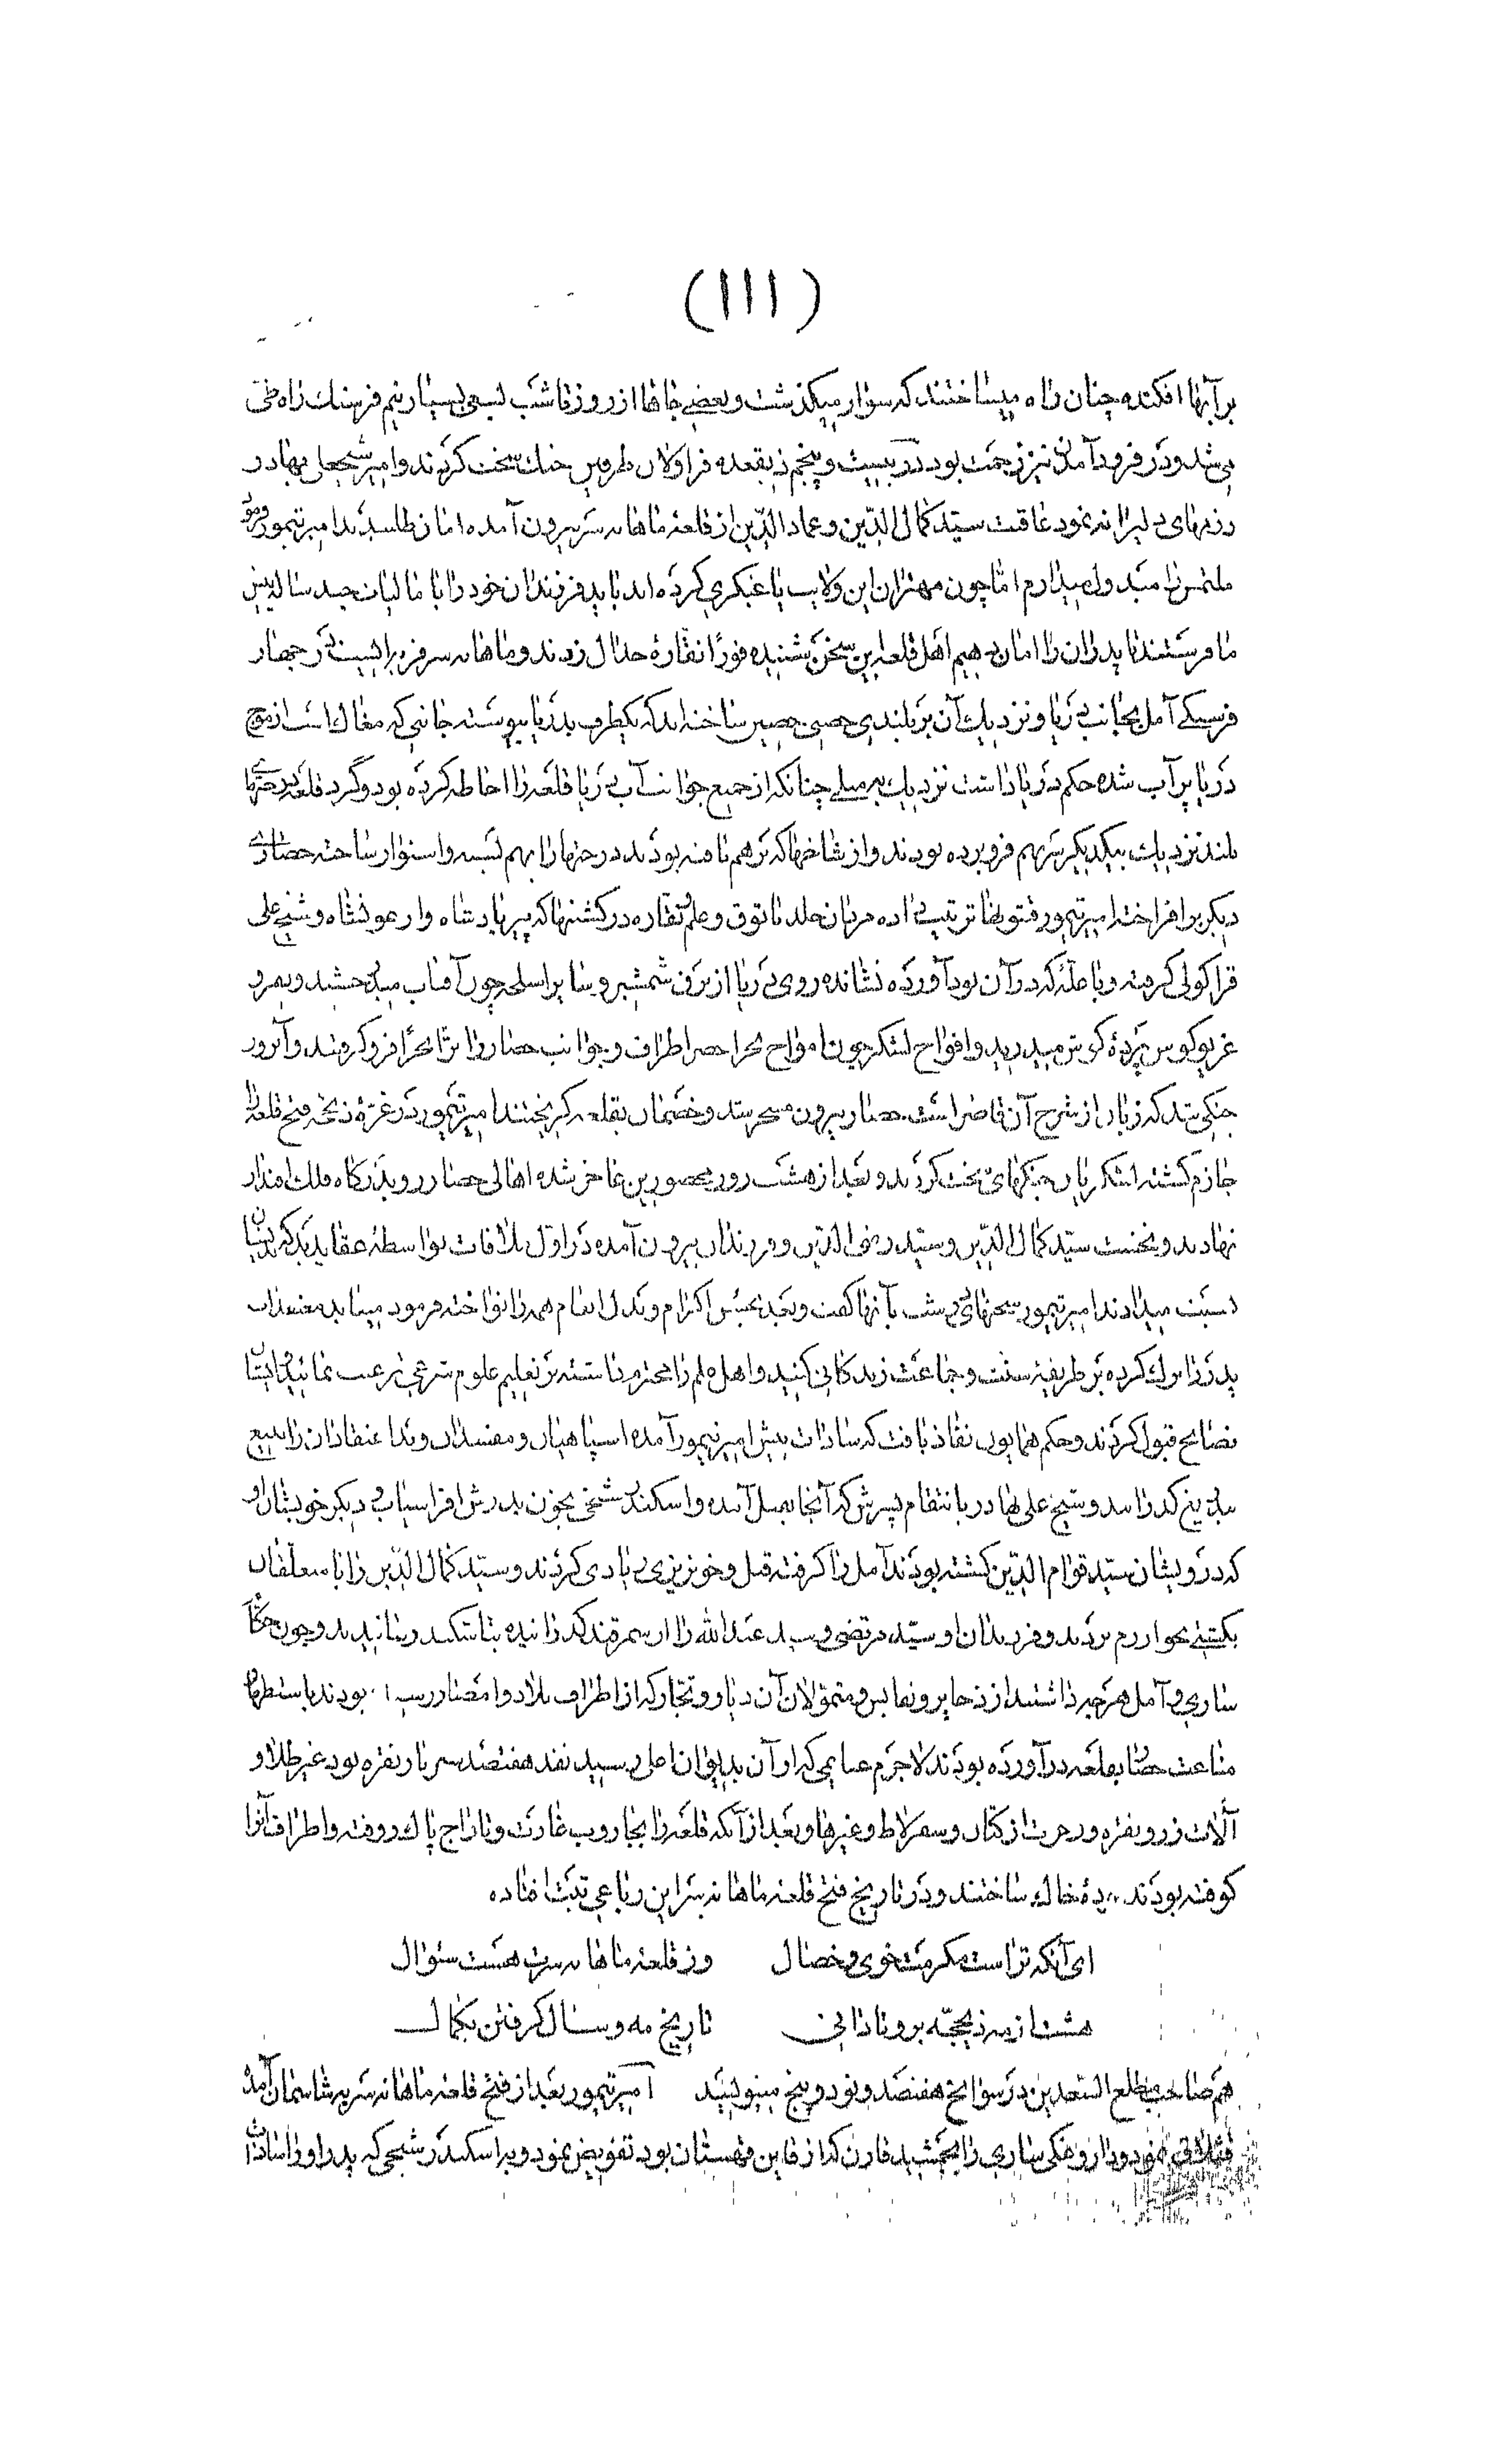 (۱۱۱)
برآبها افکنده چنان راه میساختند که سوار میگذشت و بعضی جاها از روز تا شب بسعی بسیار نیم فرسنک راه طی
می شد و در فرود آمدن نیز زحمت بود در بیست و پنجم ذیقعده قراولان طرفین جنك سخت کردند و امیر شیخعلی بهادر
رزمهای دلیرانه نمود عاقبت سیّد کمال الدّین و عماد الدّین از قلعهٔ ماهانه سر بیرون آمده امان طلبیدند امیر تیمور فرمود
ملتمس را مبذول میدارم امّا چون مهتران این ولایت یاغیگری کرده اند باید فرزندان خود را با مالیات چند ساله پیش
ما فرستند تا پدران را امان دهیم اهل قلعه این سخن شنیده فورًا نقارهٔ جدال زدند و ماهانه سر قریه ایست در چهار
فرسنگی آمل بجانب دریا و نزدیك آن بر بلندی حصنی حصین ساخته اند که یکطرف بدریا پیوسته جانبی که مغاك است از موج
دریا پر آب شده حکم دریا داشت نزدیك بمیلی چنانکه از جمیع جوانب آب دریا قلعه را احاطه کرده بود و گرد قلعه درختهای
بلند نزدیك بیکدیگر سربهم فرو برده بودند و از شاخها که در هم تافته بودند درختها را بهم بسته و استوار ساخته حصاری
دیگر برافراخته امیر تیمور قشونها ترتیب داده مردان جلد با توق و علم و نقاره در کشتیها که پیر پادشاه و ارغونشاه و شیخ علی
قراکولی گرفته و با عملهٔ که در آن بود آورده نشانده روی دریا از برق شمشیر و سایر اسلحه چون آفتاب میدرخشید و بمرد
غریو کوس پردهٔ گوش میدرید و افواج لشکر چون امواج بحر اخضر اطراف و جوانب حصار را برًّا بحرًا فرو گرفتند و آنروز
جنگی شد که زبان از شرح آن قاصر است حصار بیرون مسخر شد و خصمان بقلعه گریختند امیر تیمور در غرّهٔ ذیحجّه فتح قلعه را
جازم گشته لشکریان جنگهای سخت کردند و بعد از هشت روز محصورین عاجز شده اهالی حصار رو بدرگاه ملك اقتدار
نهادند و نخست سیّد کمال الدّین و سیّد رضی الدّین و فرزندان بیرون آمده در اوّل ملاقات بواسطهٔ عقاید بد که بدیشان
نسبت میدادند امیر تیمور سخنهای درشت بآنها گفت و بعد بحسن اکرام و بذل انعام همه را نواخته فرمود میباید معتقدات
پدر را ترك کرده بر طریقهٔ سنّت و جماعت زندگانی کنید و اهل علم را محترم داشته بر تعلیم علوم شرعی ترغیب نمائید ایشان
نصایح قبول کردند و حکم همایون نفاذ یافت که سادات پیش امیر تیمور آمده اسپاهیان و مفسدان و بداعتقادان را بتیغ
بیدریغ گذرانند و شیخ علی بهادر بانتقام پسرش که آنجا بقتل آمده و اسکندر شیخی بخون پدرش افراسیاب و دیگر خویشان او
که درویشان سیّد قوام الدّین کشته بودند آمل را گرفته قتل و خونریزی زیادی کردند و سیّد کمال الدّین را با متعلّقان
بکشتی بخوارزم بردند و فرزندان او سیّد مرتضی و سید عبدالله را از سمرقند گذرانیده بتاشکند رسانیدند و چون حکّام
ساری و آمل هرچه داشتند از ذخایر و نفایس و متمولان آن دیار و تجّار که از اطراف بلاد و امصار رسیده بودند باستظهار
مناعت حصار بقلعه در آورده بودند لاجرم غنایمی که از آن بدیوان اعلی رسید نقد هفتصد سر بار نقره بود غیر طلا و
آلات زر و نقره و رخوت از کتان و سقرلاط و غیرها و بعد از آنکه قلعه را بجاروب غارت و تاراج پاك روفته و اطراف آنرا
کوفته بودند ... خاك ساختند و در تاریخ فتح قلعهٔ ماهانه سر این رباعی ثبت افتاده
ای آنکه تراست مکرمت خوی و خصال وز قلعهٔ ماهانه سرت هست سئوال
هشت از مه ذیحجّه برو تا دانی تاریخ مه و سال گرفتن بکمال
هم صاحب مطلع السعدین در سوانح هفتصد و نود و پنج مینویسد امیر تیمور بعد از فتح قلعهٔ ماهانه سر بشاسمان آمده
قشلاقی نمود و داروغگی ساری را بجمشید قارن که از قاین قهستان بود تفویض نمود و بر اسکندر شیخی که پدر او را سادات